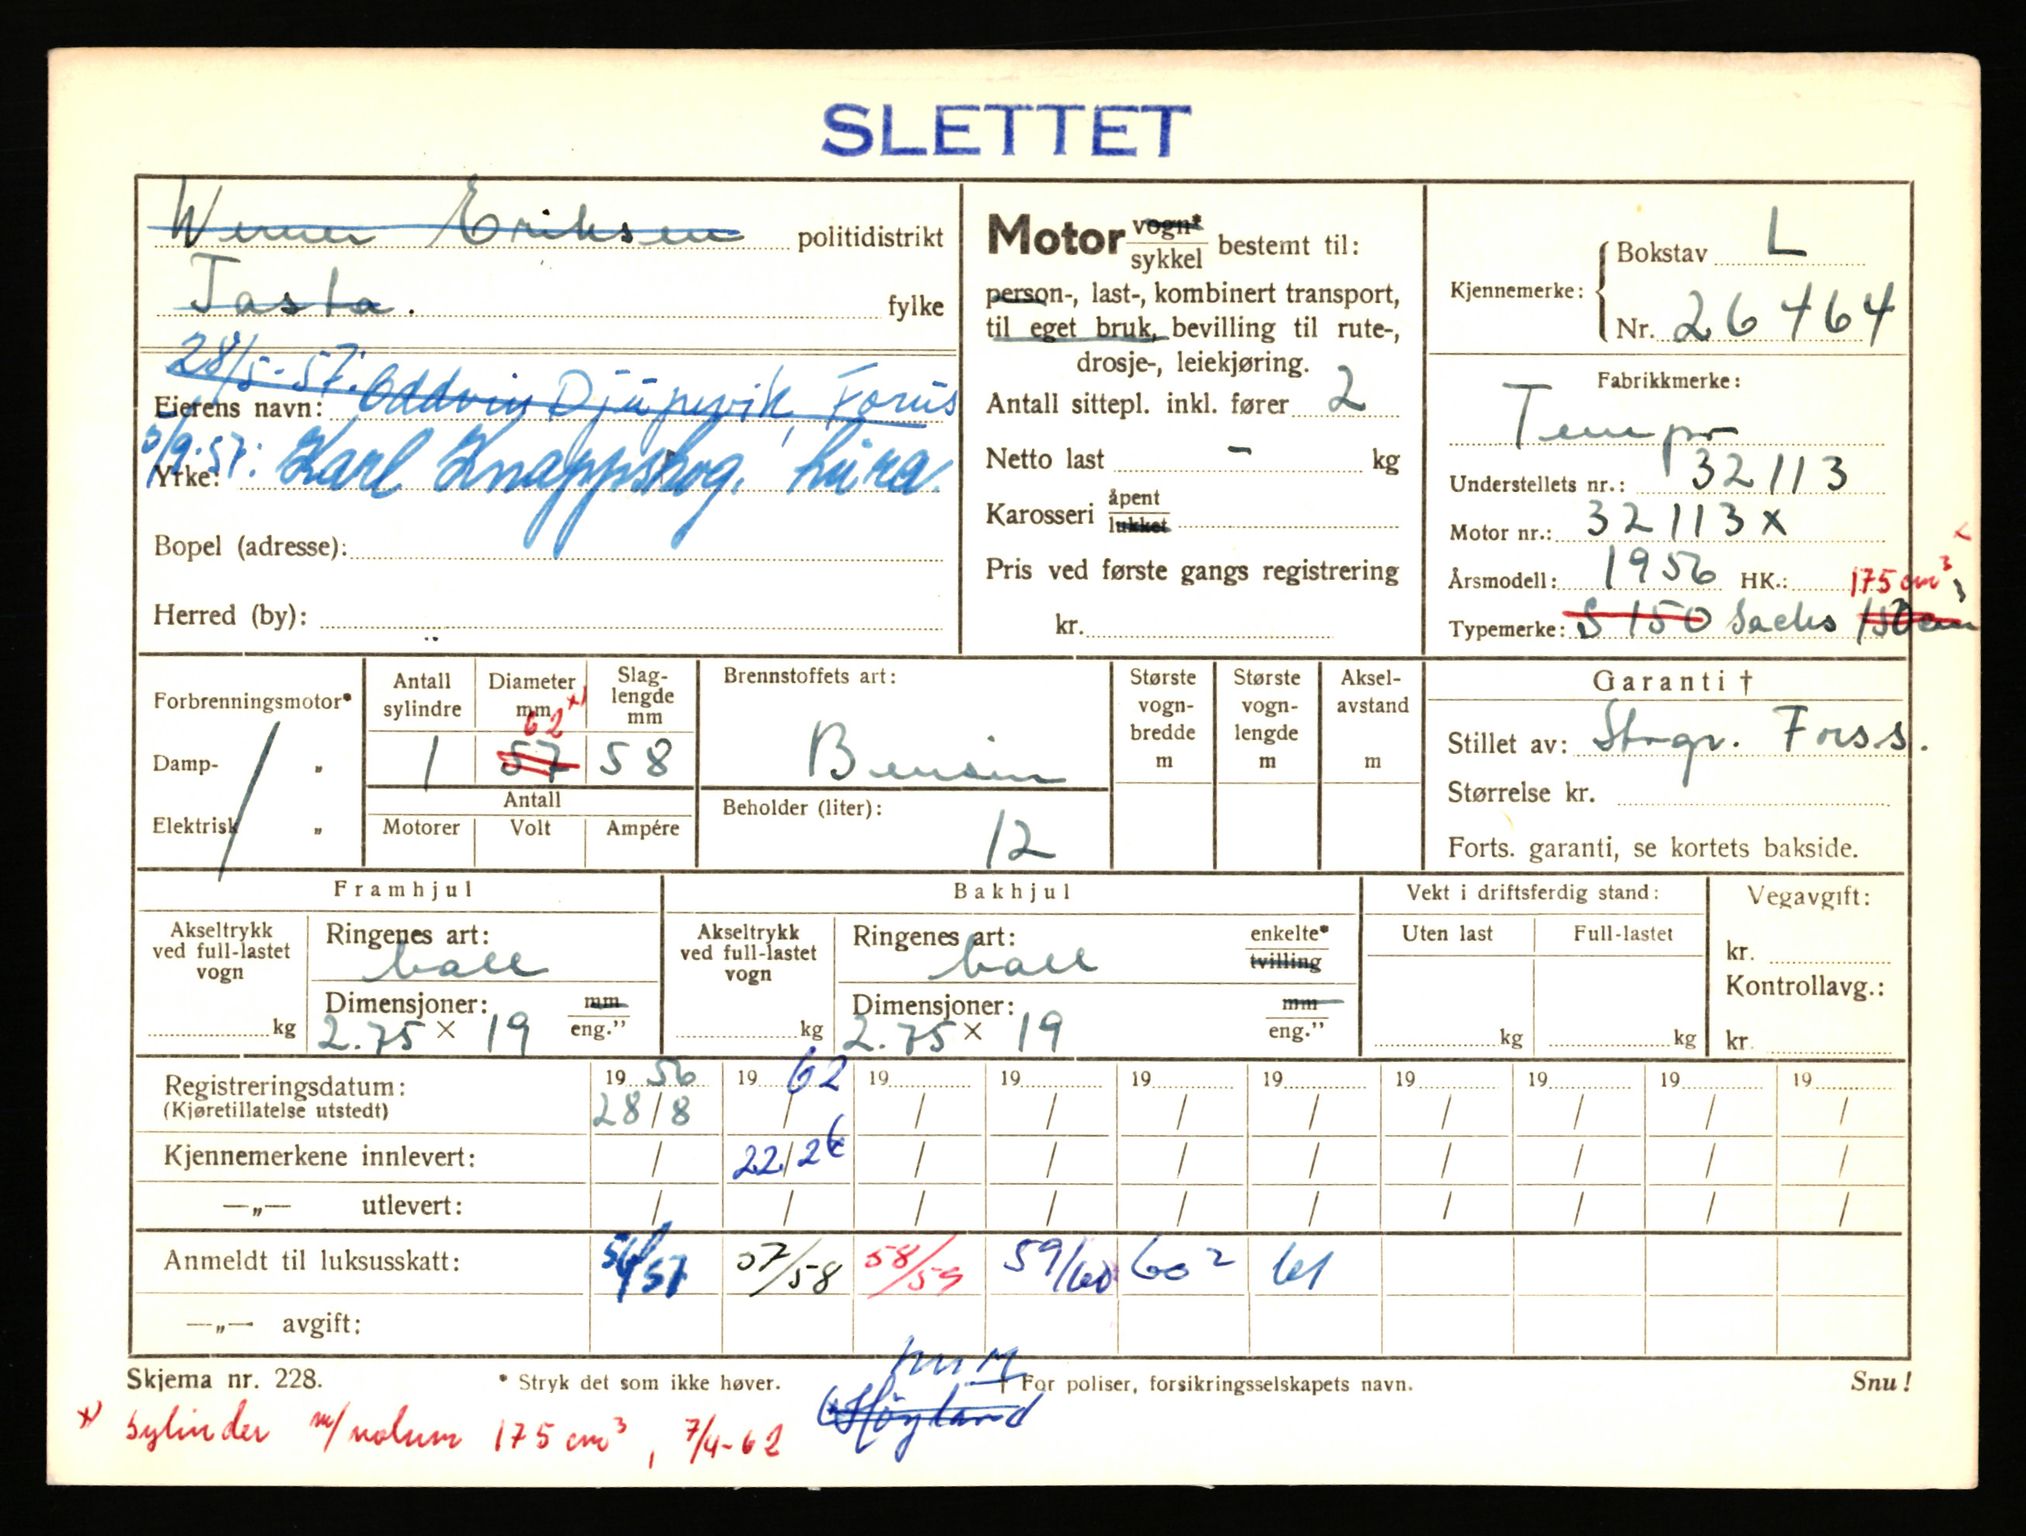 SLETTET
Werner Eriksen politidistrikt
Tasta. fylke
28/5-57. Oddvin Djupevik, Forus
Eierens navn:
5/9-57: Karl Knappskog, Lura.
Yrke:
Bopel (adresse):
Herred (by):
Motor vogn* / sykkel bestemt til:
person-, last-, kombinert transport,
til eget bruk, bevilling til rute-,
drosje-, leiekjøring.
Antall sittepl. inkl. fører 2
Netto last - kg
Karosseri åpent / lukket
Pris ved første gangs registrering
kr.
Kjennemerke: Bokstav L
Nr. 26464
Fabrikkmerke:
Tempo
Understellets nr.: 32113
Motor nr.: 32113 x
Årsmodell: 1956 HK.: 175 cm³ x
Typemerke: S 150 Sachs 150 cm³
Forbrenningsmotor*
Damp- „
Elektrisk „
Antall sylindre 1
Diameter mm 62 x) 57
Slaglengde mm 58
Antall
Motorer Volt Ampére
Brennstoffets art:
Bensin
Beholder (liter):
12
Største vognbredde m
Største vognlengde m
Akselavstand m
Garanti †
Stillet av: Storgr. Forss.
Størrelse kr.
Forts. garanti, se kortets bakside.
Framhjul
Akseltrykk ved full-lastet vogn kg
Ringenes art: ball
Dimensjoner: mm / eng."
2.75 x 19
Bakhjul
Akseltrykk ved full-lastet vogn kg
Ringenes art: ball enkelte* / tvilling
Dimensjoner: mm / eng."
2.75 x 19
Vekt i driftsferdig stand:
Uten last kg Full-lastet kg
Vegavgift:
kr.
Kontrollavg.:
kr.
Registreringsdatum: 19 56 19 62 19 19 19 19 19 19 19 19
(Kjøretillatelse utstedt) 28/8 / / / / / / / / /
Kjennemerkene innlevert: / 22/2 / / / / / / / /
—„— utlevert: / / / / / / / / / /
Anmeldt til luksusskatt: 56/57 57/58 58/59 59/60 60² 61
—„— avgift:
Skjema nr. 228. * Stryk det som ikke høver. † For poliser, forsikringsselskapets navn. Snu!
Høyland
x) Sylinder m/volum 175 cm³, 7/4-62